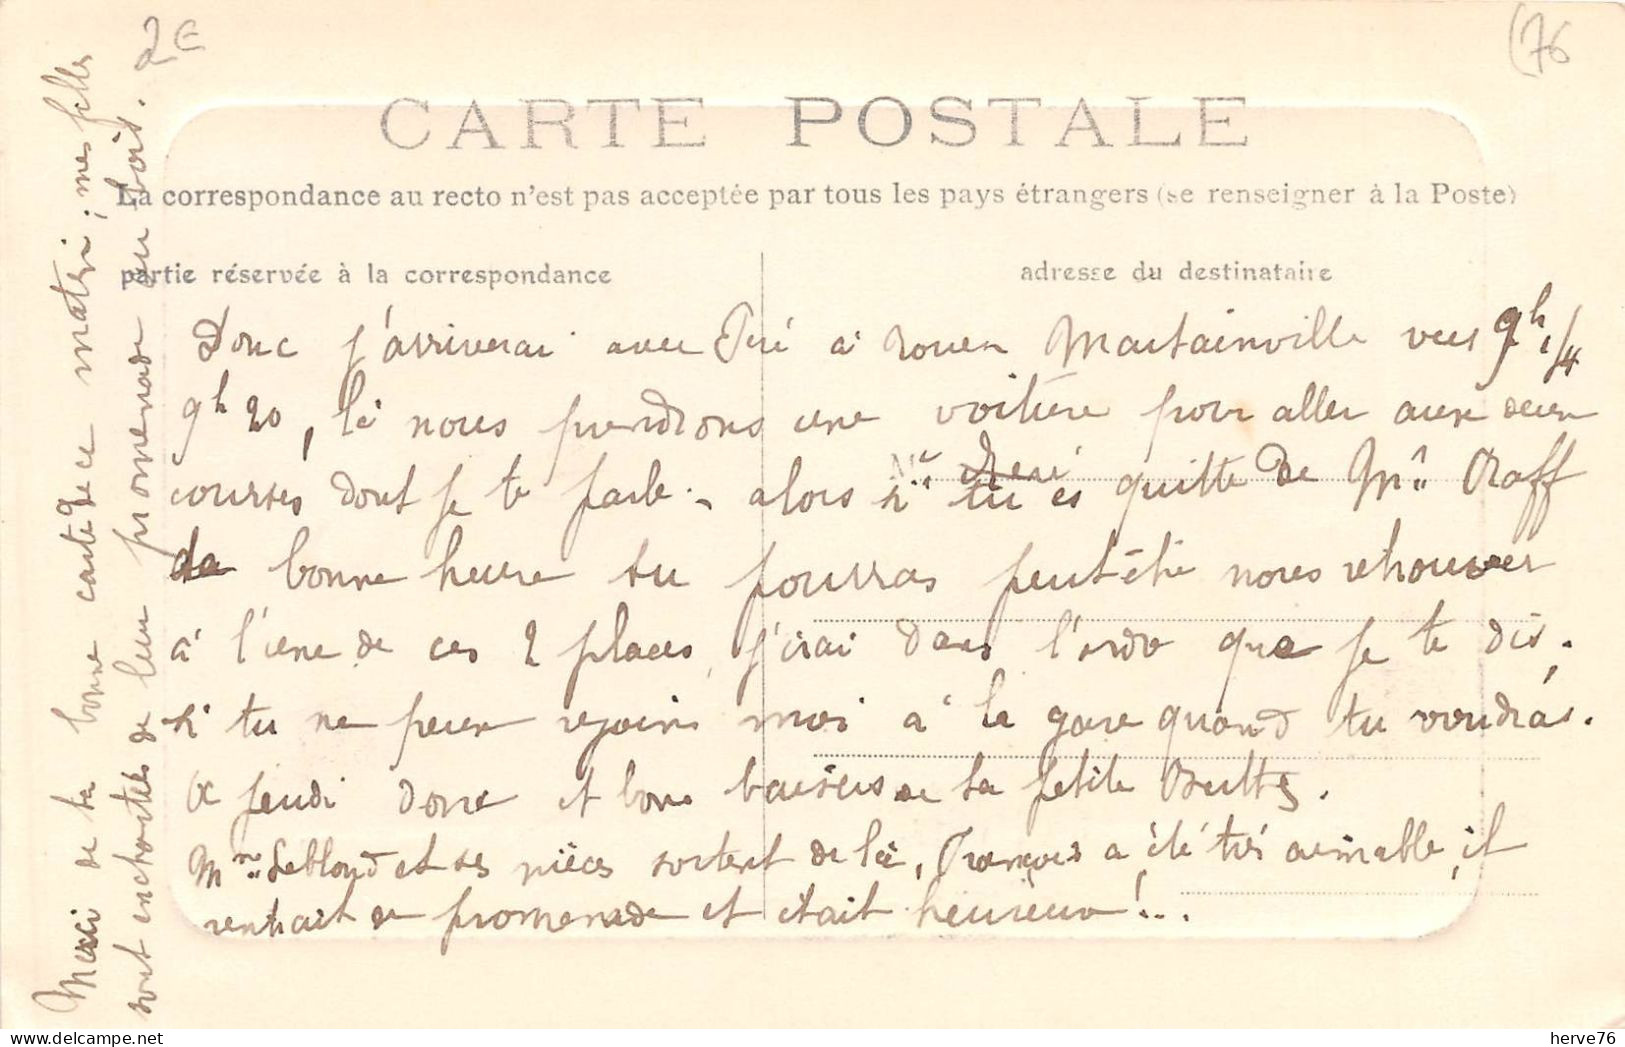 2€
(76
CARTE POSTALE
La correspondance au recto n'est pas acceptée par tous les pays étrangers (se renseigner à la Poste)
partie réservée à la correspondance
adresse du destinataire
Donc j'arriverai avec à rouen Martainville vers 9h 1/4
9h 20, là nous prendrons une voiture pour aller aux deux
courses dont je te parle. - alors si tu es quitte de Mr Raff
de bonne heure tu pourras peut-être nous retrouver
à l'une de ces 2 places, j'irai dans l'ordre que je te dis.
si tu ne peux rejoins moi à la gare quand tu voudras.
a jeudi donc et bons baisers de ta petite
Mme Leblond et ses nièces sortent de là, François a été très aimable, il
rentrait de promenade et était heureux!...
Merci de ta bonne carte de ce matin; mes filles
sont enchantées de leur promenade au bois.
herve76